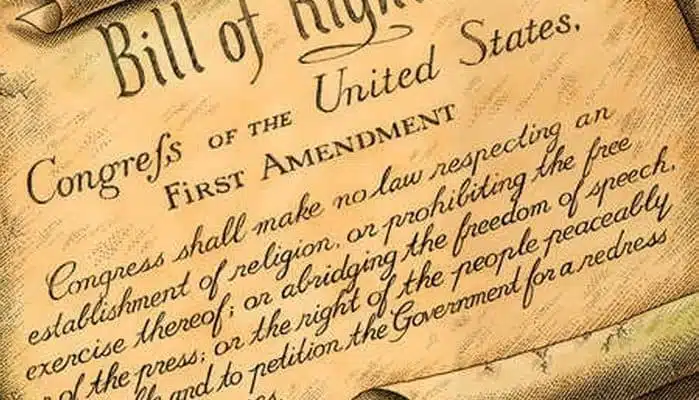 Bill of Righ
Congreſs OF THE United States,
FIRST AMENDMENT
Congress shall make no law respecting an
establishment of religion, or prohibiting the free
exercise thereof; or abridging the freedom of speech,
of the press; or the right of the people peaceably
and to petition the Government for a redress